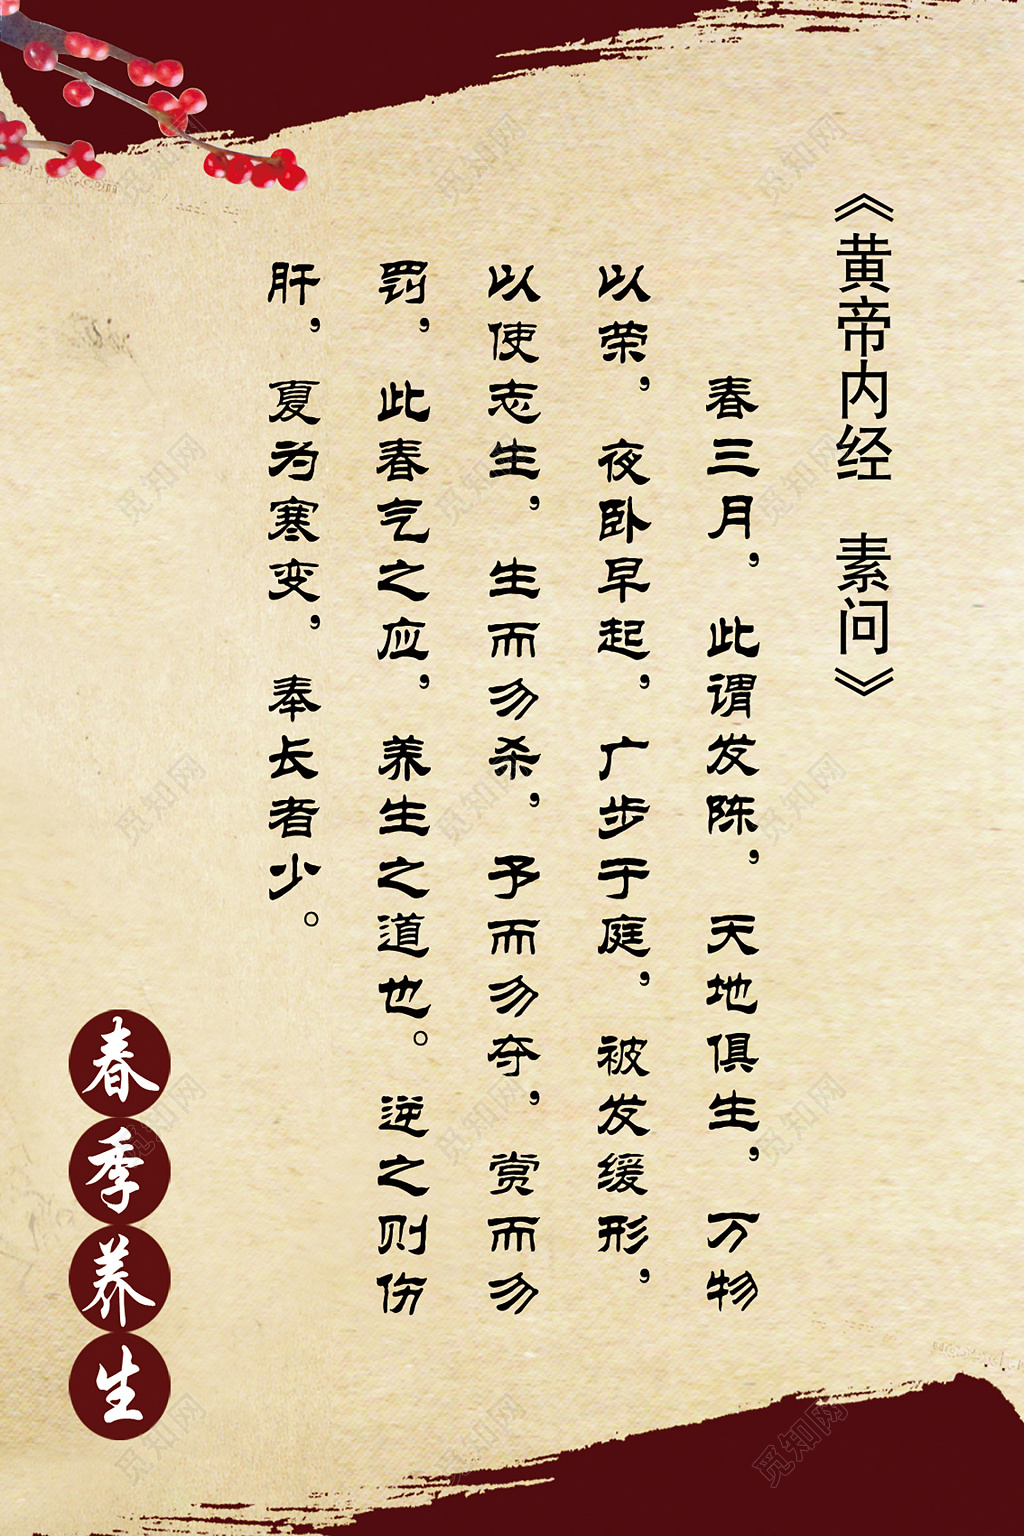 《黄帝内经 素问》
春三月，此谓发陈，天地俱生，万物
以荣，夜卧早起，广步于庭，被发缓形，
以使志生，生而勿杀，予而勿夺，赏而勿
罚，此春气之应，养生之道也。逆之则伤
肝，夏为寒变，奉长者少。
春季养生
觅知网